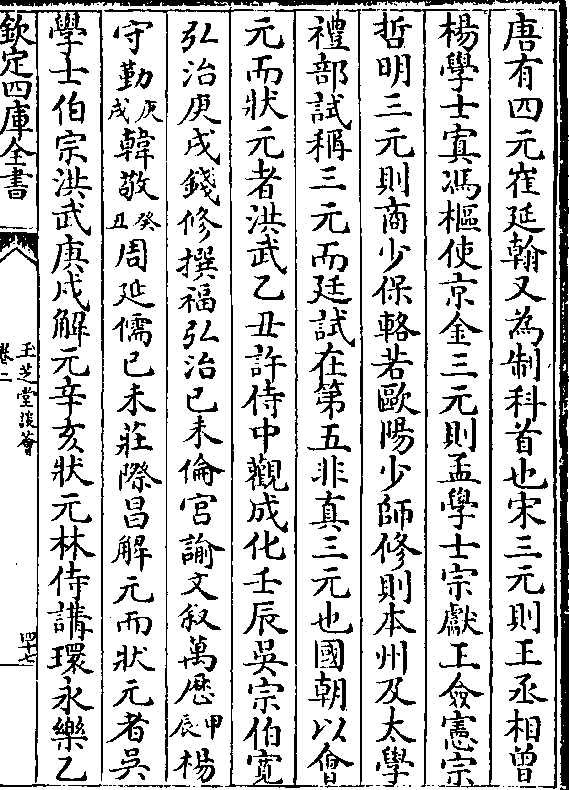 唐有四元崔廷翰又為制科首也宋三元則王丞相曾
楊學士寘馮樞使京金三元則孟學士宗獻王僉憲宗
哲明三元則商少保輅若歐陽少師修則本州及太學
禮部試稱三元而廷試在第五非真三元也國朝以會
元而狀元者洪武乙丑許侍中觀成化壬辰吳宗伯寛
弘治庚戌錢修撰福弘治己未倫宫諭文叙萬厯甲辰楊
守勤庚戌韓敬癸丑周延儒己未莊際昌解元而狀元者吳
學士伯宗洪武庚戌解元辛亥狀元林侍講環永樂乙
欽定四庫全書
玉芝堂談薈
卷二
四十七